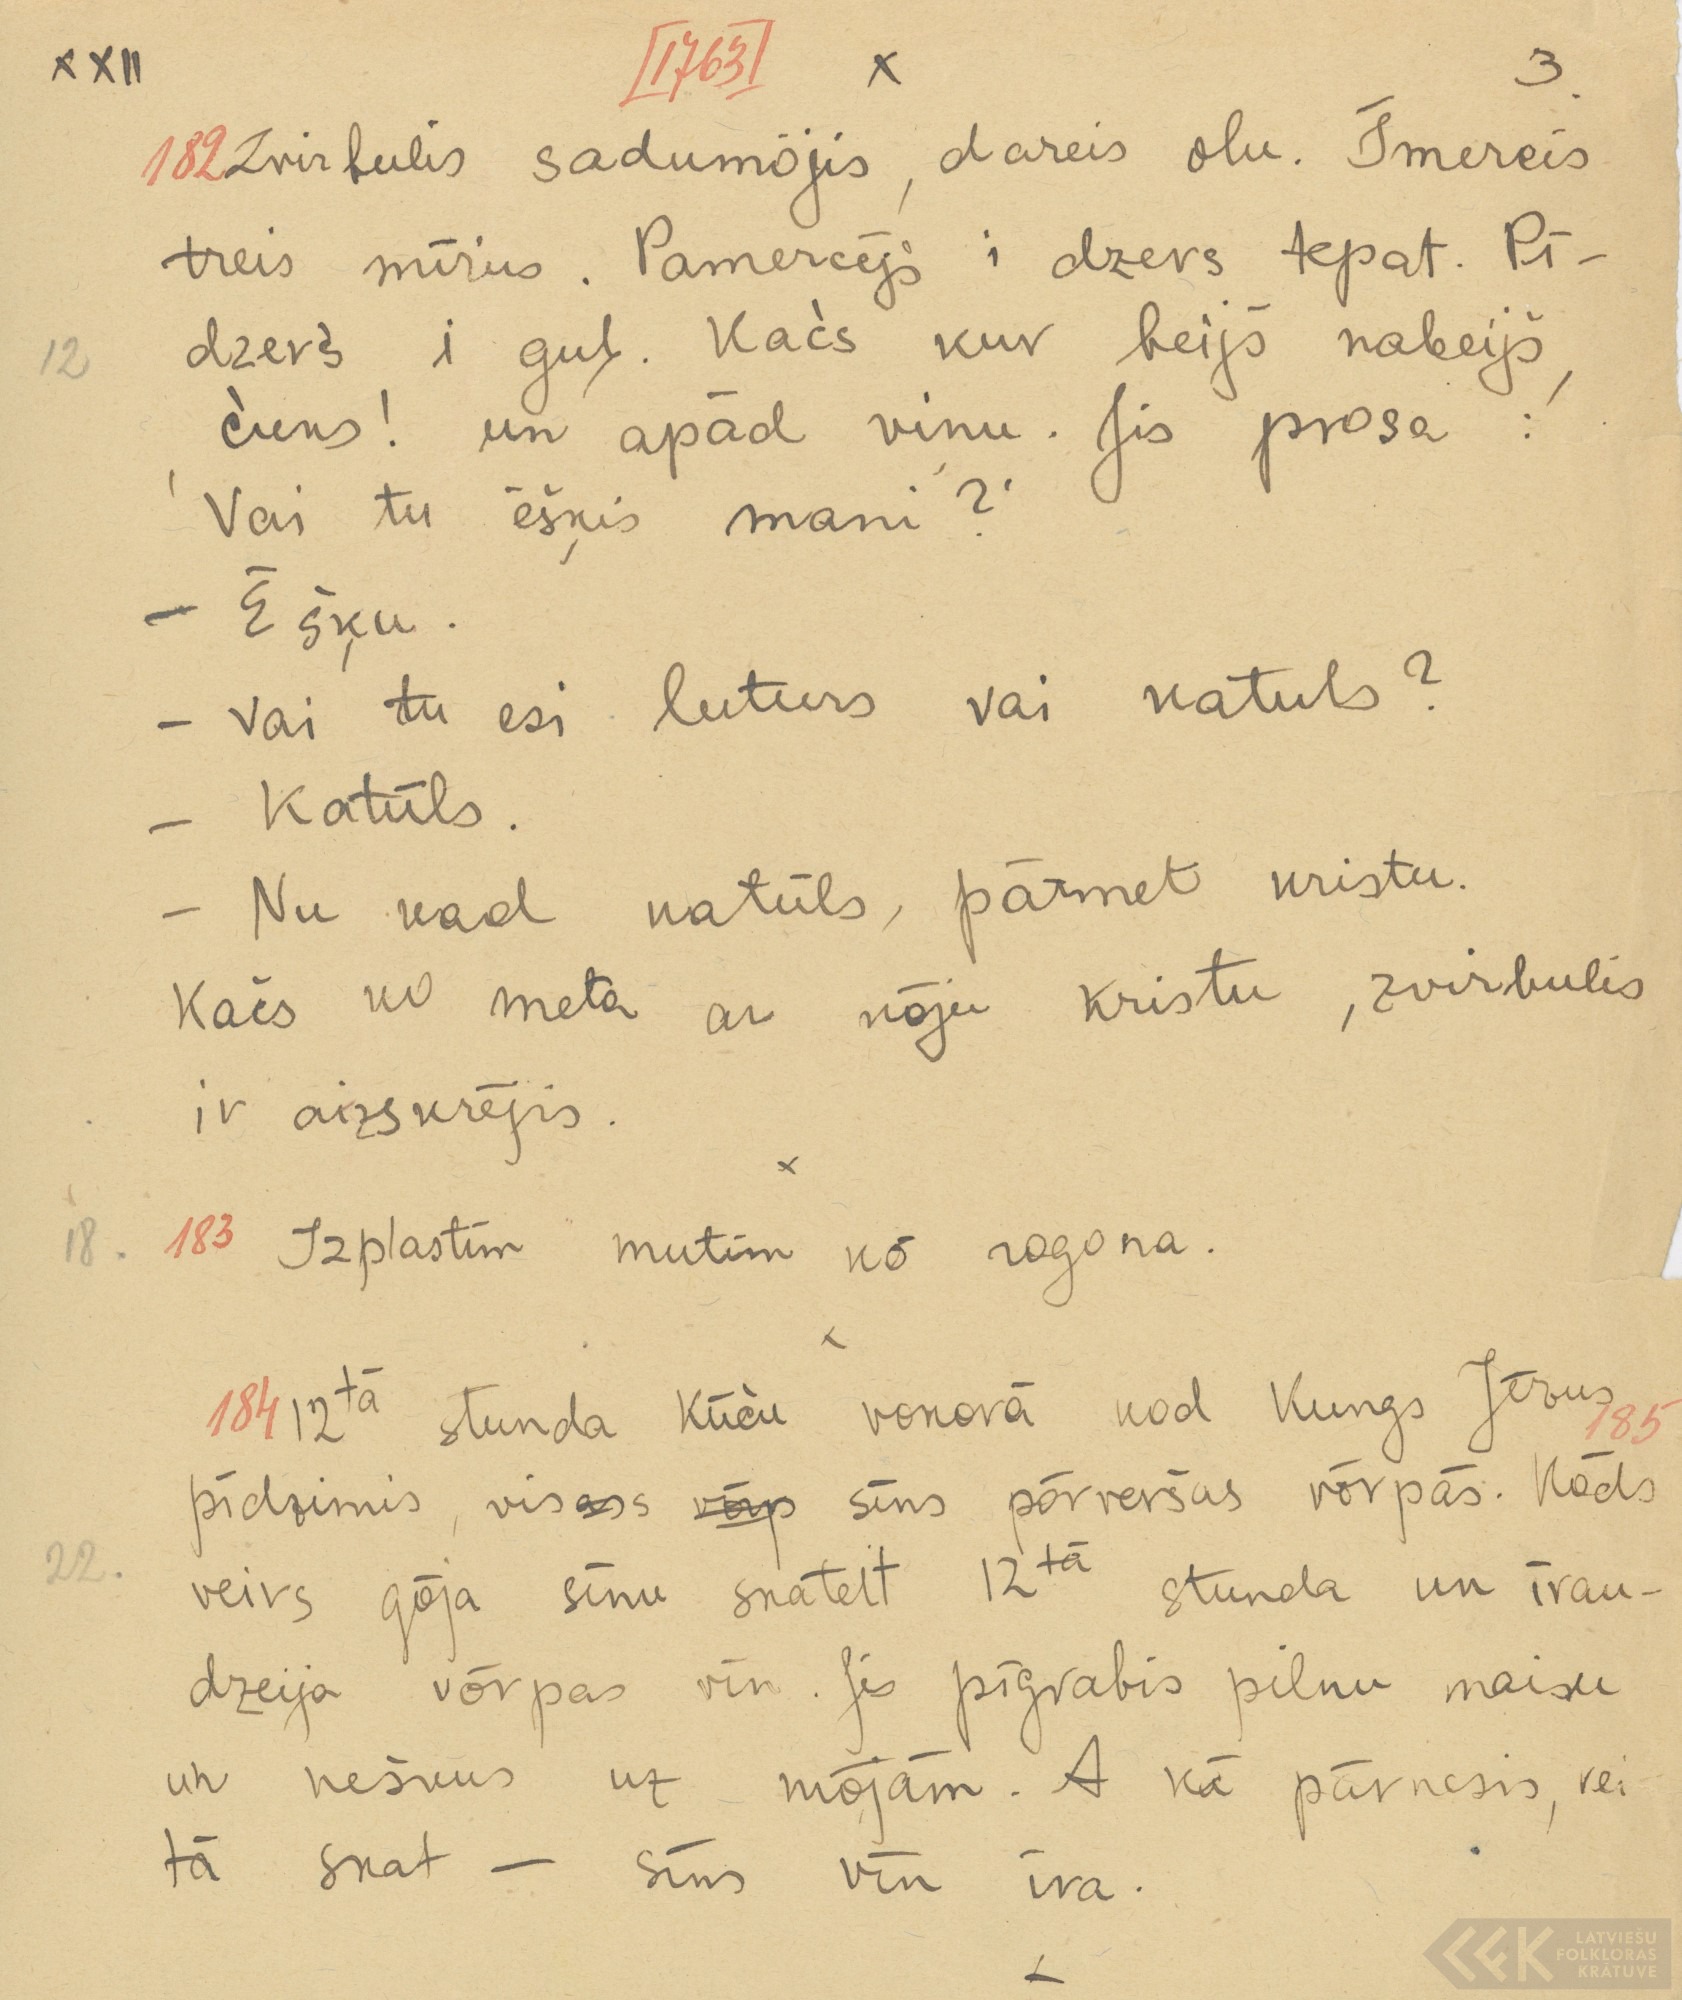 XXII [1763] x 3.
182 Zvirbulis sadumōjis, dareis olu. Īmereis
treis mīrus. Pamercējs i dzers tepat. Pī-
12 dzerš i guļ. Kačs kur beijš nabeijš,
čuks! un apād vinu. Jis prosa:
'Vai tu ēšķis mani?'
- Ēšķu.
- Vai tu esi luturs vai katuls?
- Katūls.
- Nu kad katūls, pārmet kristu.
Kačs ko meta ar kōju kristu, zvirbulis
ir aizskrējis.
x
18. 183 Izplastim mutim kō rogona.
x
184 12tā stunda Kūču vokorā kod Kungs Jēzus 185
pīdzimis, viss sīns pōrveršas vōrpās. Kōds
22. veirs gōja sīnu skateit 12tā stunda un īrau-
dzeija vōrpas vīn. Jis pīgrabis pilnu maisu
un neškus uz mōjām. A kā pārnesis, rei-
tā skat — sīns vīn īra.
x
LATVIEŠU
FOLKLORAS
KRĀTUVE